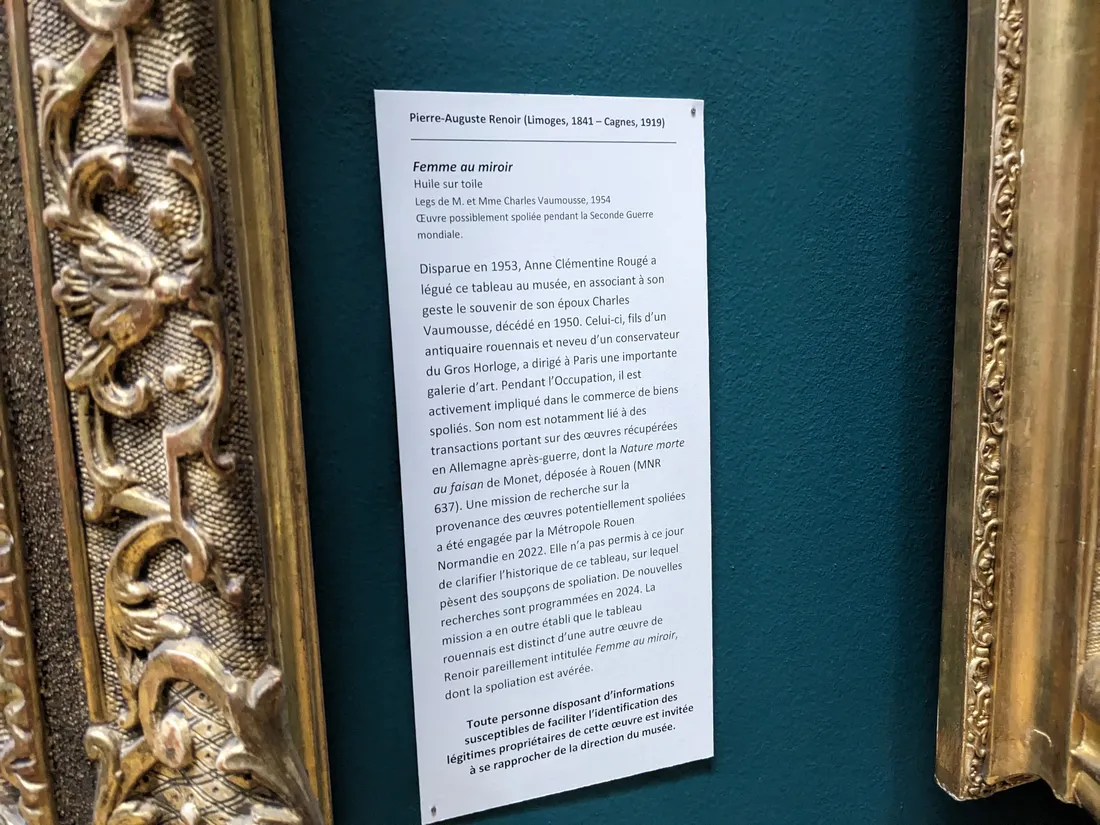 Pierre-Auguste Renoir (Limoges, 1841 – Cagnes, 1919)
Femme au miroir
Huile sur toile
Legs de M. et Mme Charles Vaumousse, 1954
Œuvre possiblement spoliée pendant la Seconde Guerre
mondiale.
Disparue en 1953, Anne Clémentine Rougé a
légué ce tableau au musée, en associant à son
geste le souvenir de son époux Charles
Vaumousse, décédé en 1950. Celui-ci, fils d’un
antiquaire rouennais et neveu d’un conservateur
du Gros Horloge, a dirigé à Paris une importante
galerie d’art. Pendant l’Occupation, il est
activement impliqué dans le commerce de biens
spoliés. Son nom est notamment lié à des
transactions portant sur des œuvres récupérées
en Allemagne après-guerre, dont la Nature morte
au faisan de Monet, déposée à Rouen (MNR
637). Une mission de recherche sur la
provenance des œuvres potentiellement spoliées
a été engagée par la Métropole Rouen
Normandie en 2022. Elle n’a pas permis à ce jour
de clarifier l’historique de ce tableau, sur lequel
pèsent des soupçons de spoliation. De nouvelles
recherches sont programmées en 2024. La
mission a en outre établi que le tableau
rouennais est distinct d’une autre œuvre de
Renoir pareillement intitulée Femme au miroir,
dont la spoliation est avérée.
Toute personne disposant d’informations
susceptibles de faciliter l’identification des
légitimes propriétaires de cette œuvre est invitée
à se rapprocher de la direction du musée.